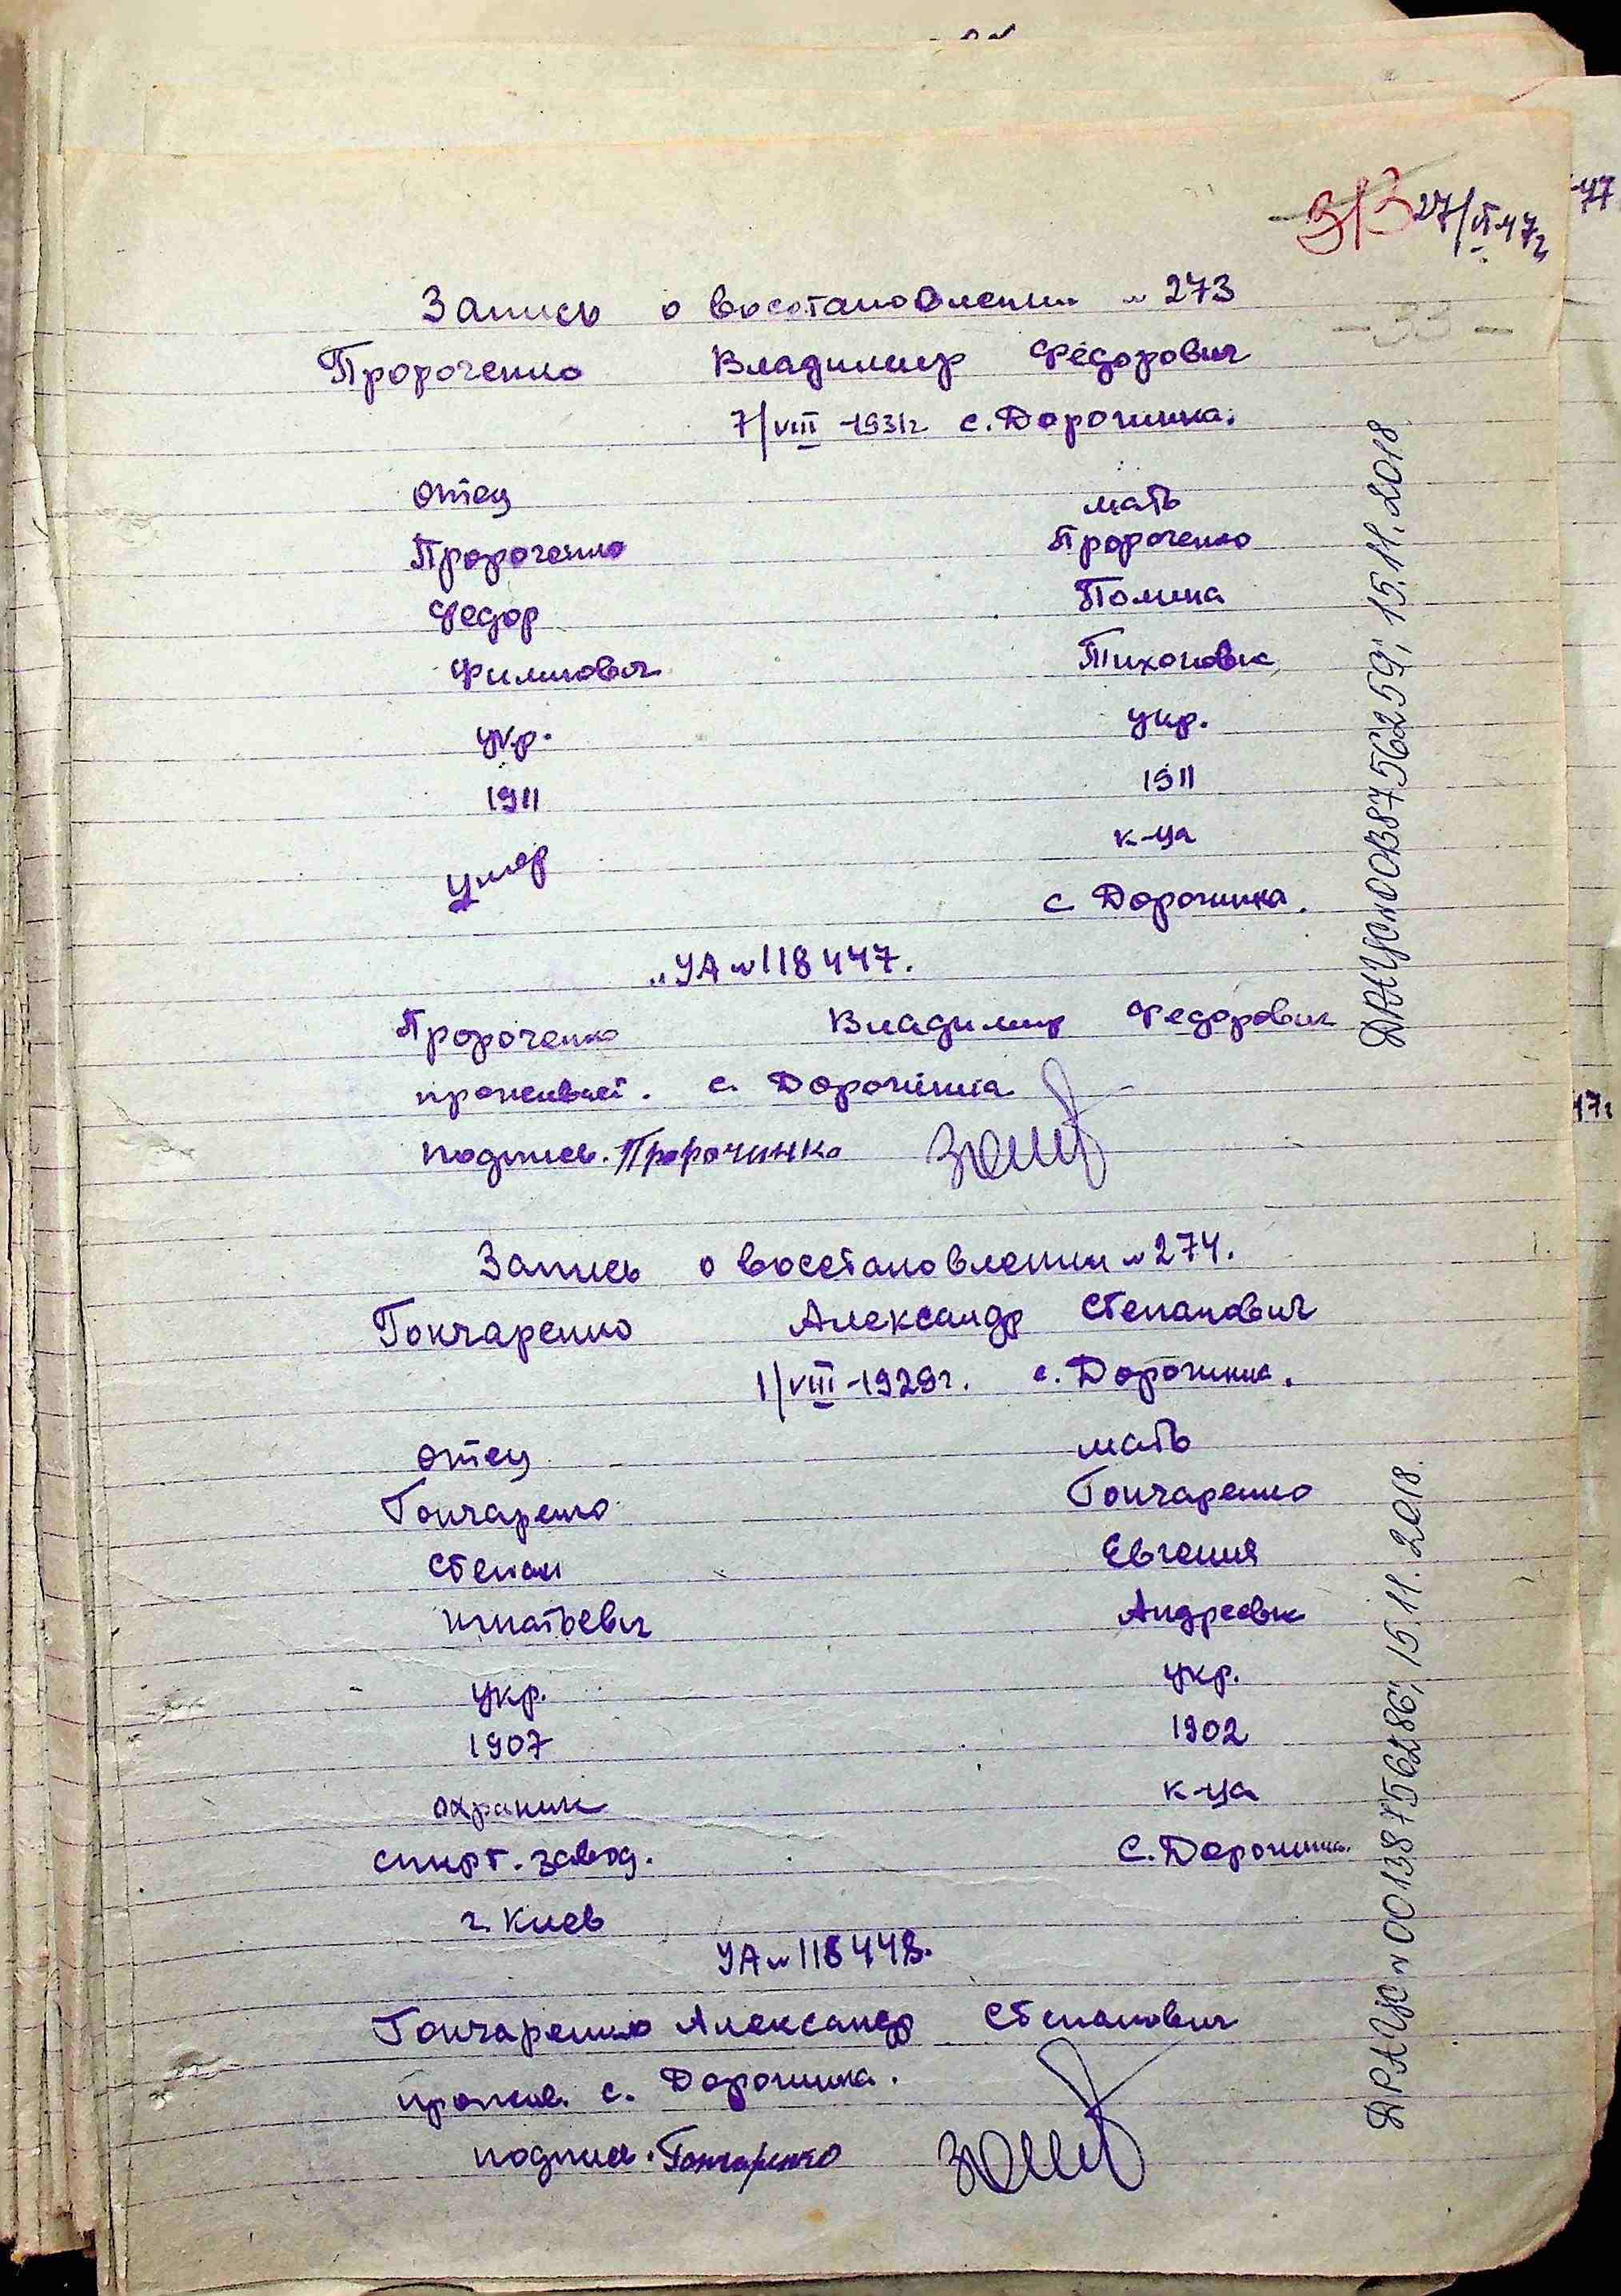 313 27/VI-47г
Запись о восстановлении № 273
- 33 -
Пророченко Владимир Федорович
7/VIII-1931г. с. Дорогинка.
отец мать
Пророченко Пророченко
Федор Полина
Филипович Тихоновна
укр. укр.
1911 1911
умер к-ца
с Дорогинка.
УА № 118447.
Пророченко Владимир Федорович
проживает. с. Дорогинка
подпись. Пророчинко
Запись о восстановлении № 274.
Гончаренко Александр Степанович
1/VIII-1929г. с. Дорогинка.
отец мать
Гончаренко Гончаренко
Степан Евгения
Игнатьевич Андреевна
укр. укр.
1907 1902
охраник к-ца
спирт. завод. с. Дорогинка.
г. Киев
УА № 118448.
Гончаренко Александр Степанович
прожив. с. Дорогинка.
подпись. Гончаренко
ДРАЦС № 00138756259, 15.11.2018
ДРАЦС № 00138756286, 15.11.2018.